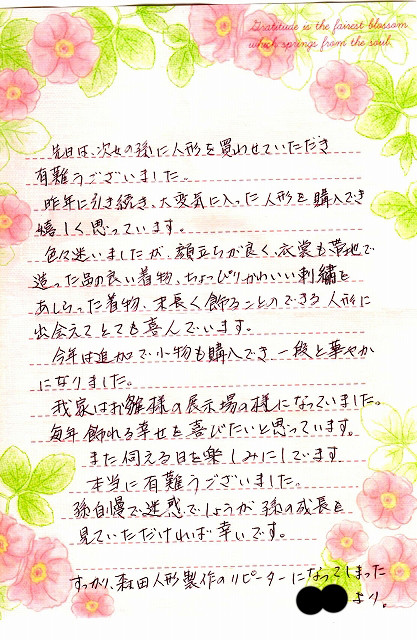 Gratitude is the fairest blossom
which springs from the soul.
先日は、次女の孫に人形を買わせていただき
有難うございました。
昨年に引き続き、大変気に入った人形を購入でき
嬉しく思っています。
色々迷いましたが、顔立ちが良く、衣裳も帯地で
造った品の良い着物、ちょっぴりかわいい刺繍を
あしらった着物、末長く飾ることのできる人形に
出会えてとても喜んでいます。
今年は追加で小物も購入でき一段と華やか
になりました。
我家はお雛様の展示場の様になっていました。
毎年飾れる幸せを喜びたいと思っています。
また伺える日を楽しみにしています
本当に有難うございました。
孫自慢で迷惑でしょうが孫の成長を
見ていただければ幸いです。
すっかり、森田人形製作のリピーターになってしまった
より。